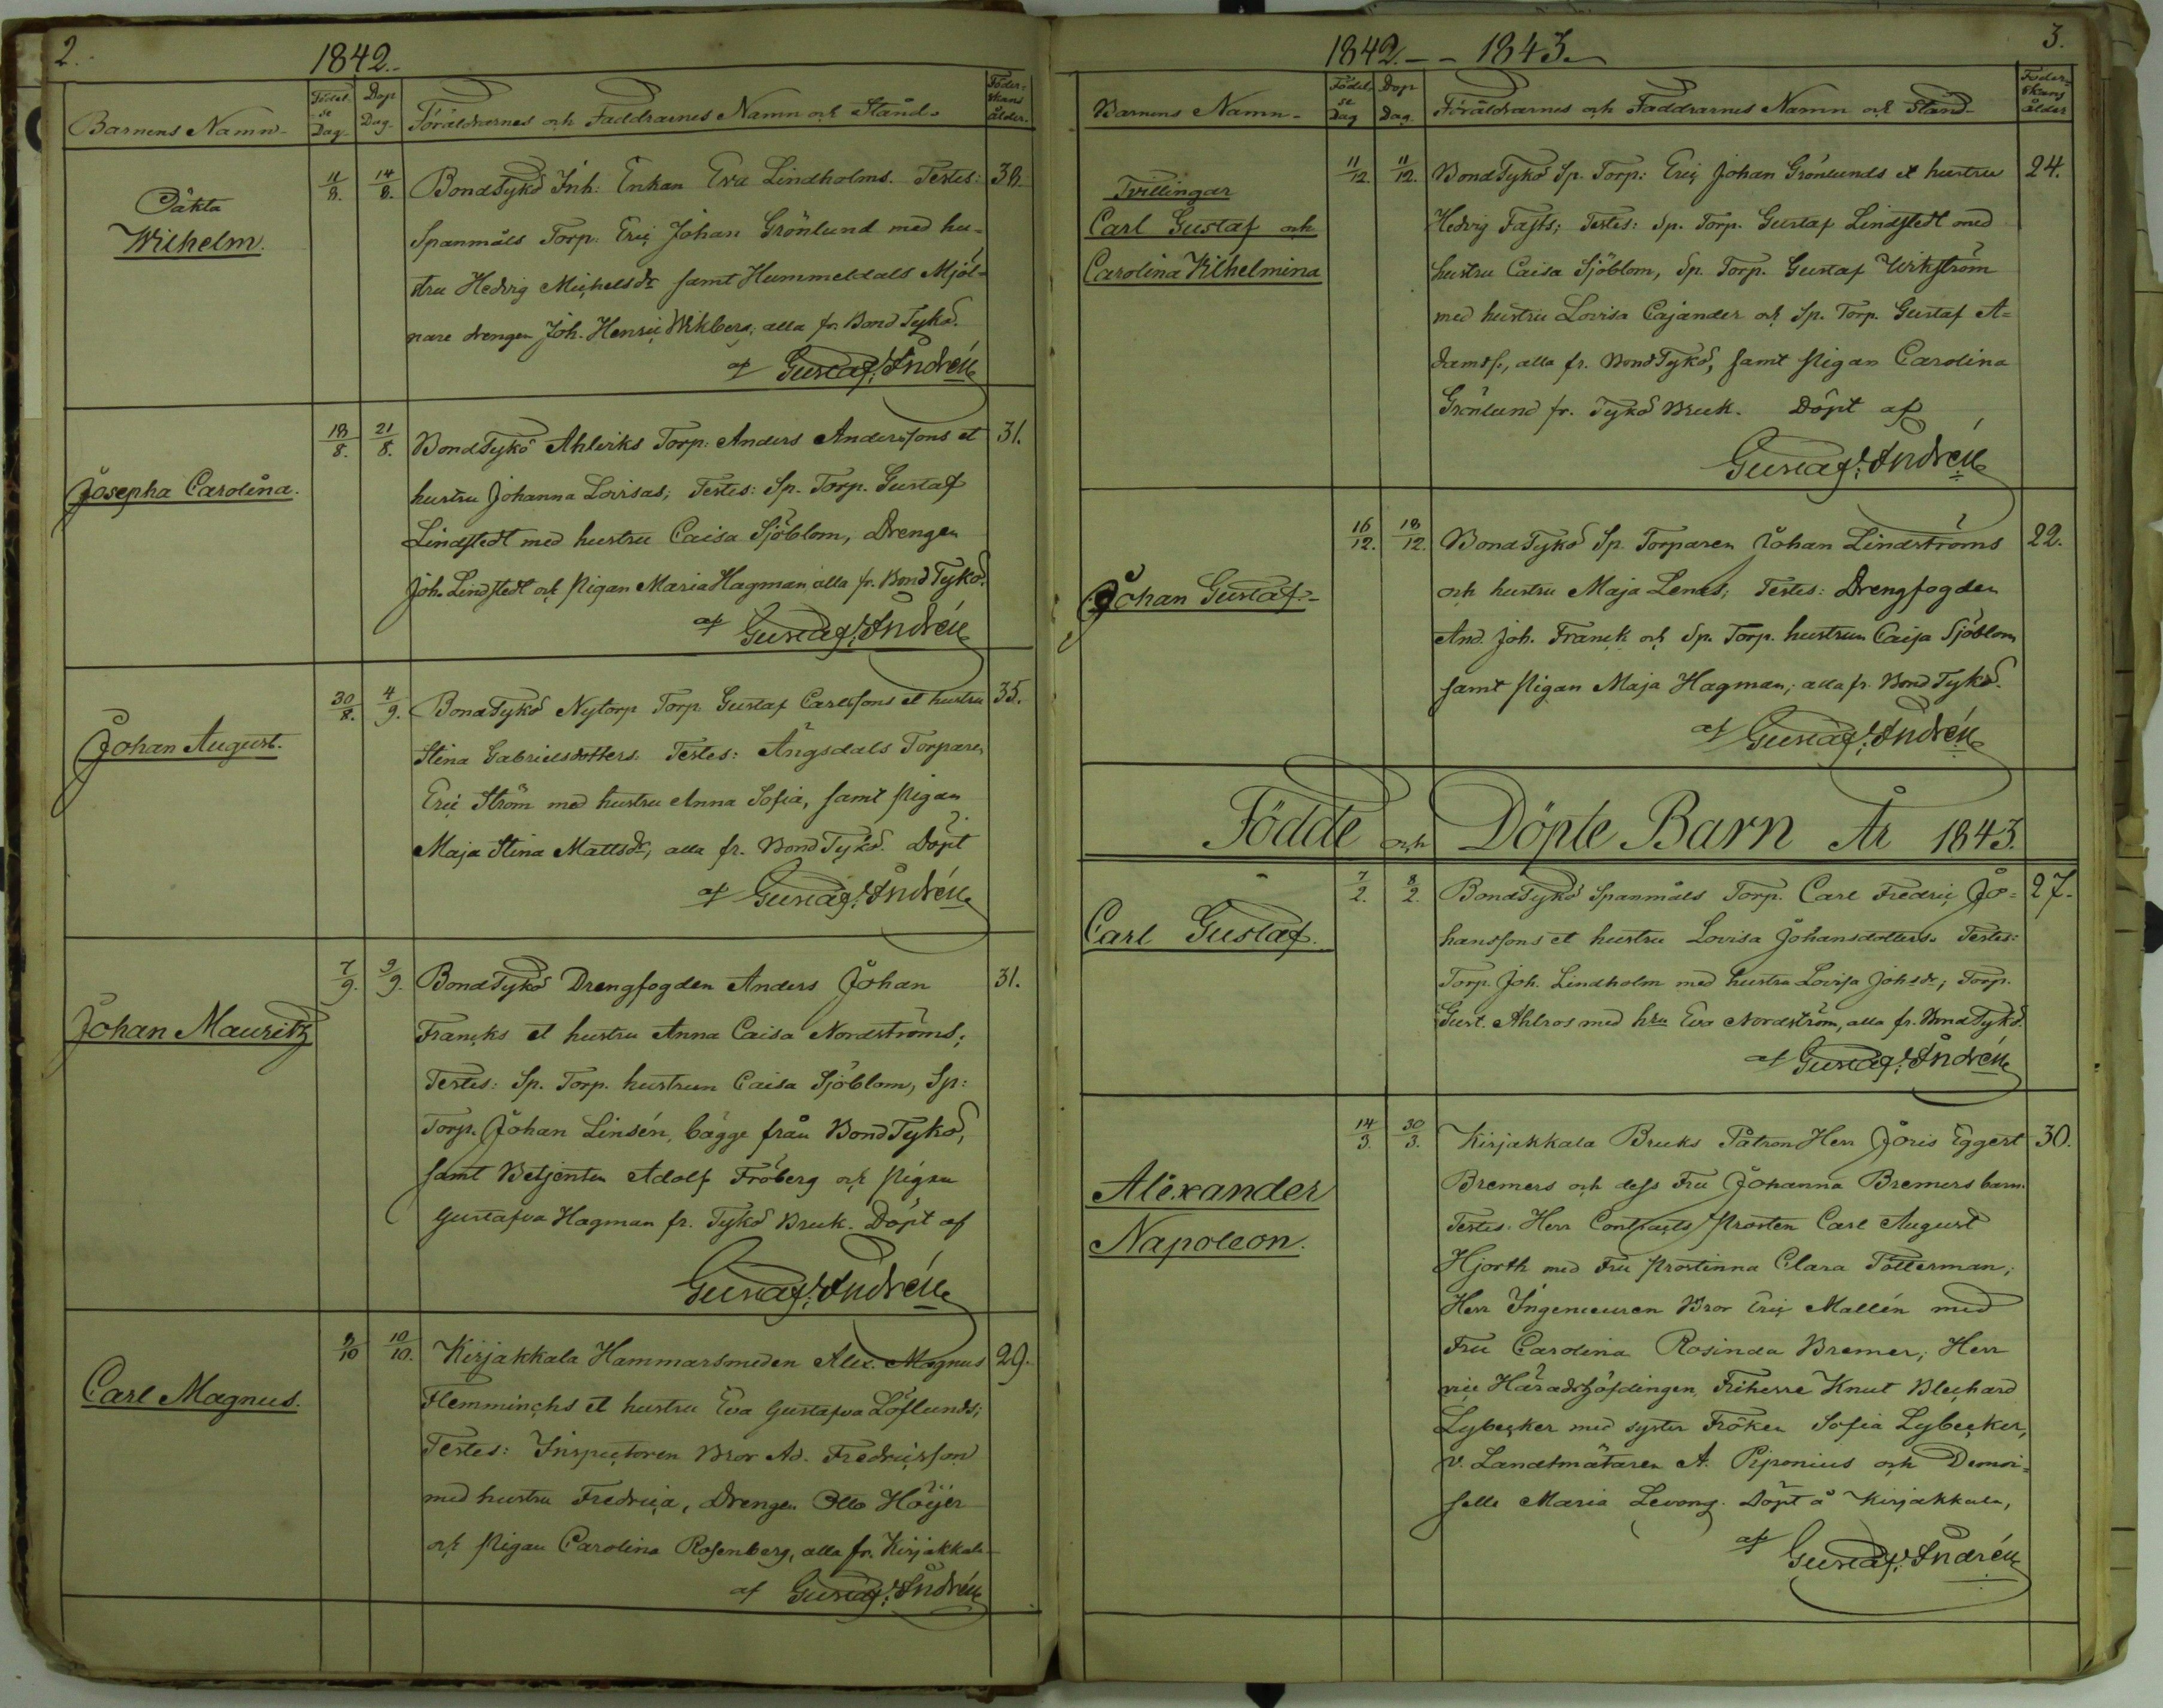 2.
1842.
Barnens Namn
Födel-
se
Dag.
Dop
Dag.
Föräldrarnes och Faddrarnes Namn och Stånd.
Föder-
skans
ålder.
Oäkta
Wilhelm.
11/8.
14/8.
BondTykö Inh: Enkan Eva Lindholms. Testes:
38.
Spanmåls Torp: Eric Johan Grönlund med hu-
stru Hedvig Michelsdr samt Hummeldals Mjöl-
nare drengen Joh. Henric Wikberg, alla fr. BondTykö.
af Gustaf Andrén
Josepha Carolina.
18/8.
21/8.
BondTykö Ahlviks Torp: Anders Anderssons et
31.
hustru Johanna Lovisas; Testes: Sp. Torp. Gustaf
Lindstedt med hustru Caisa Sjöblom, Drengen
Joh. Lindstedt och Pigan Maria Hagman alla fr. BondTykö.
af Gustaf Andrén
Johan August.
30/8.
4/9.
BondTykö Nytorp Torp. Gustaf Carlssons et hustru
35.
Stina Gabrielsdotters. Testes: Ängsdals Torparen
Eric Ström med hustru Anna Sofia, samt Pigan
Maja Stina Mattsdr, alla fr. BondTykö. Döpt
af Gustaf Andrén
Johan Mauritz
7/9.
9/9.
BondTykö Drengfogden Anders Johan
31.
Francks et hustru Anna Caisa Nordströms;
Testes: Sp. Torp. hustrun Caisa Sjöblom, Sp:
Torp. Johan Linsén, bägge från BondTykö,
samt Betjenten Adolf Fröberg och Pigan
Gustafva Hagman fr. Tykö Bruk. Döpt af
Gustaf Andrén
Carl Magnus.
9/10
10/10.
Kirjakkala Hammarsmeden Alex. Magnus
29.
Flemminchs et hustru Eva Gustafva Löflunds;
Testes: Inspectoren Bror Ad. Fredricsson
med hustru Fredrica, Drengen Otto Höijer
och Pigan Carolina Rosenberg, alla fr. Kirjakkala
af Gustaf Andrén
1842. - - 1843.
3.
Barnens Namn
Födel-
se
Dag
Dop
Dag.
Föräldrarnes och Faddrarnes Namn och Stånd
Föder-
skans
ålder
Tvillingar
Carl Gustaf och
Carolina Wilhelmina
11/12.
11/12.
BondTykö Sp. Torp: Eric Johan Grönlunds et hustru
24.
Hedvig Fasts; Testes: Sp. Torp. Gustaf Lindstedt med
hustru Caisa Sjöblom, Sp. Torp. Gustaf Wikström
med hustru Lovisa Cajander och Sp. Torp. Gustaf A-
damss, alla fr. BondTykö, samt Pigan Carolina
Grönlund fr. Tykö Bruk. Döpt af
Gustaf Andrén
Johan Gustaf
16/12.
18/12.
BondTykö Sp. Torparen Johan Lindströms
22.
och hustru Maja Lenas; Testes: Drengfogden
And. Joh. Franck och Sp. Torp. hustrun Caisa Sjöblom
samt Pigan Maja Hagman; alla fr. BondTykö.
af Gustaf Andrén
Födde och Döpte Barn År 1843.
Carl Gustaf.
7/2.
8/2.
BondTykö Spanmåls Torp. Carl Fredric Jo-
27.
hanssons et hustru Lovisa Johansdotters. Testes:
Torp. Joh. Lindholm med hustru Lovisa Johsdr; Torp.
Gust. Ahlros med hru Eva Nordström, alla fr. BondTykö.
af Gustaf Andrén
Alexander
Napoleon.
14/3.
30/3.
Kirjakkala Bruks Patron Herr Joris Eggert
30.
Bremers och dess Fru Johanna Bremers barn.
Testes: Herr Contracts Prosten Carl August
Hjorth med Fru Prostinna Clara Pötterman;
Herr Ingenieuren Bror Eric Mallén med
Fru Carolina Rosinda Bremer; Herr
vice Häradshöfdingen, Friherre Knut Blechard
Lybecker med syster Fröken Sofia Lybecker,
v. Landtmätaren A. Piponius och Demoi-
selle Maria Levong. Döpt å Kirjakkala,
af Gustaf Andrén